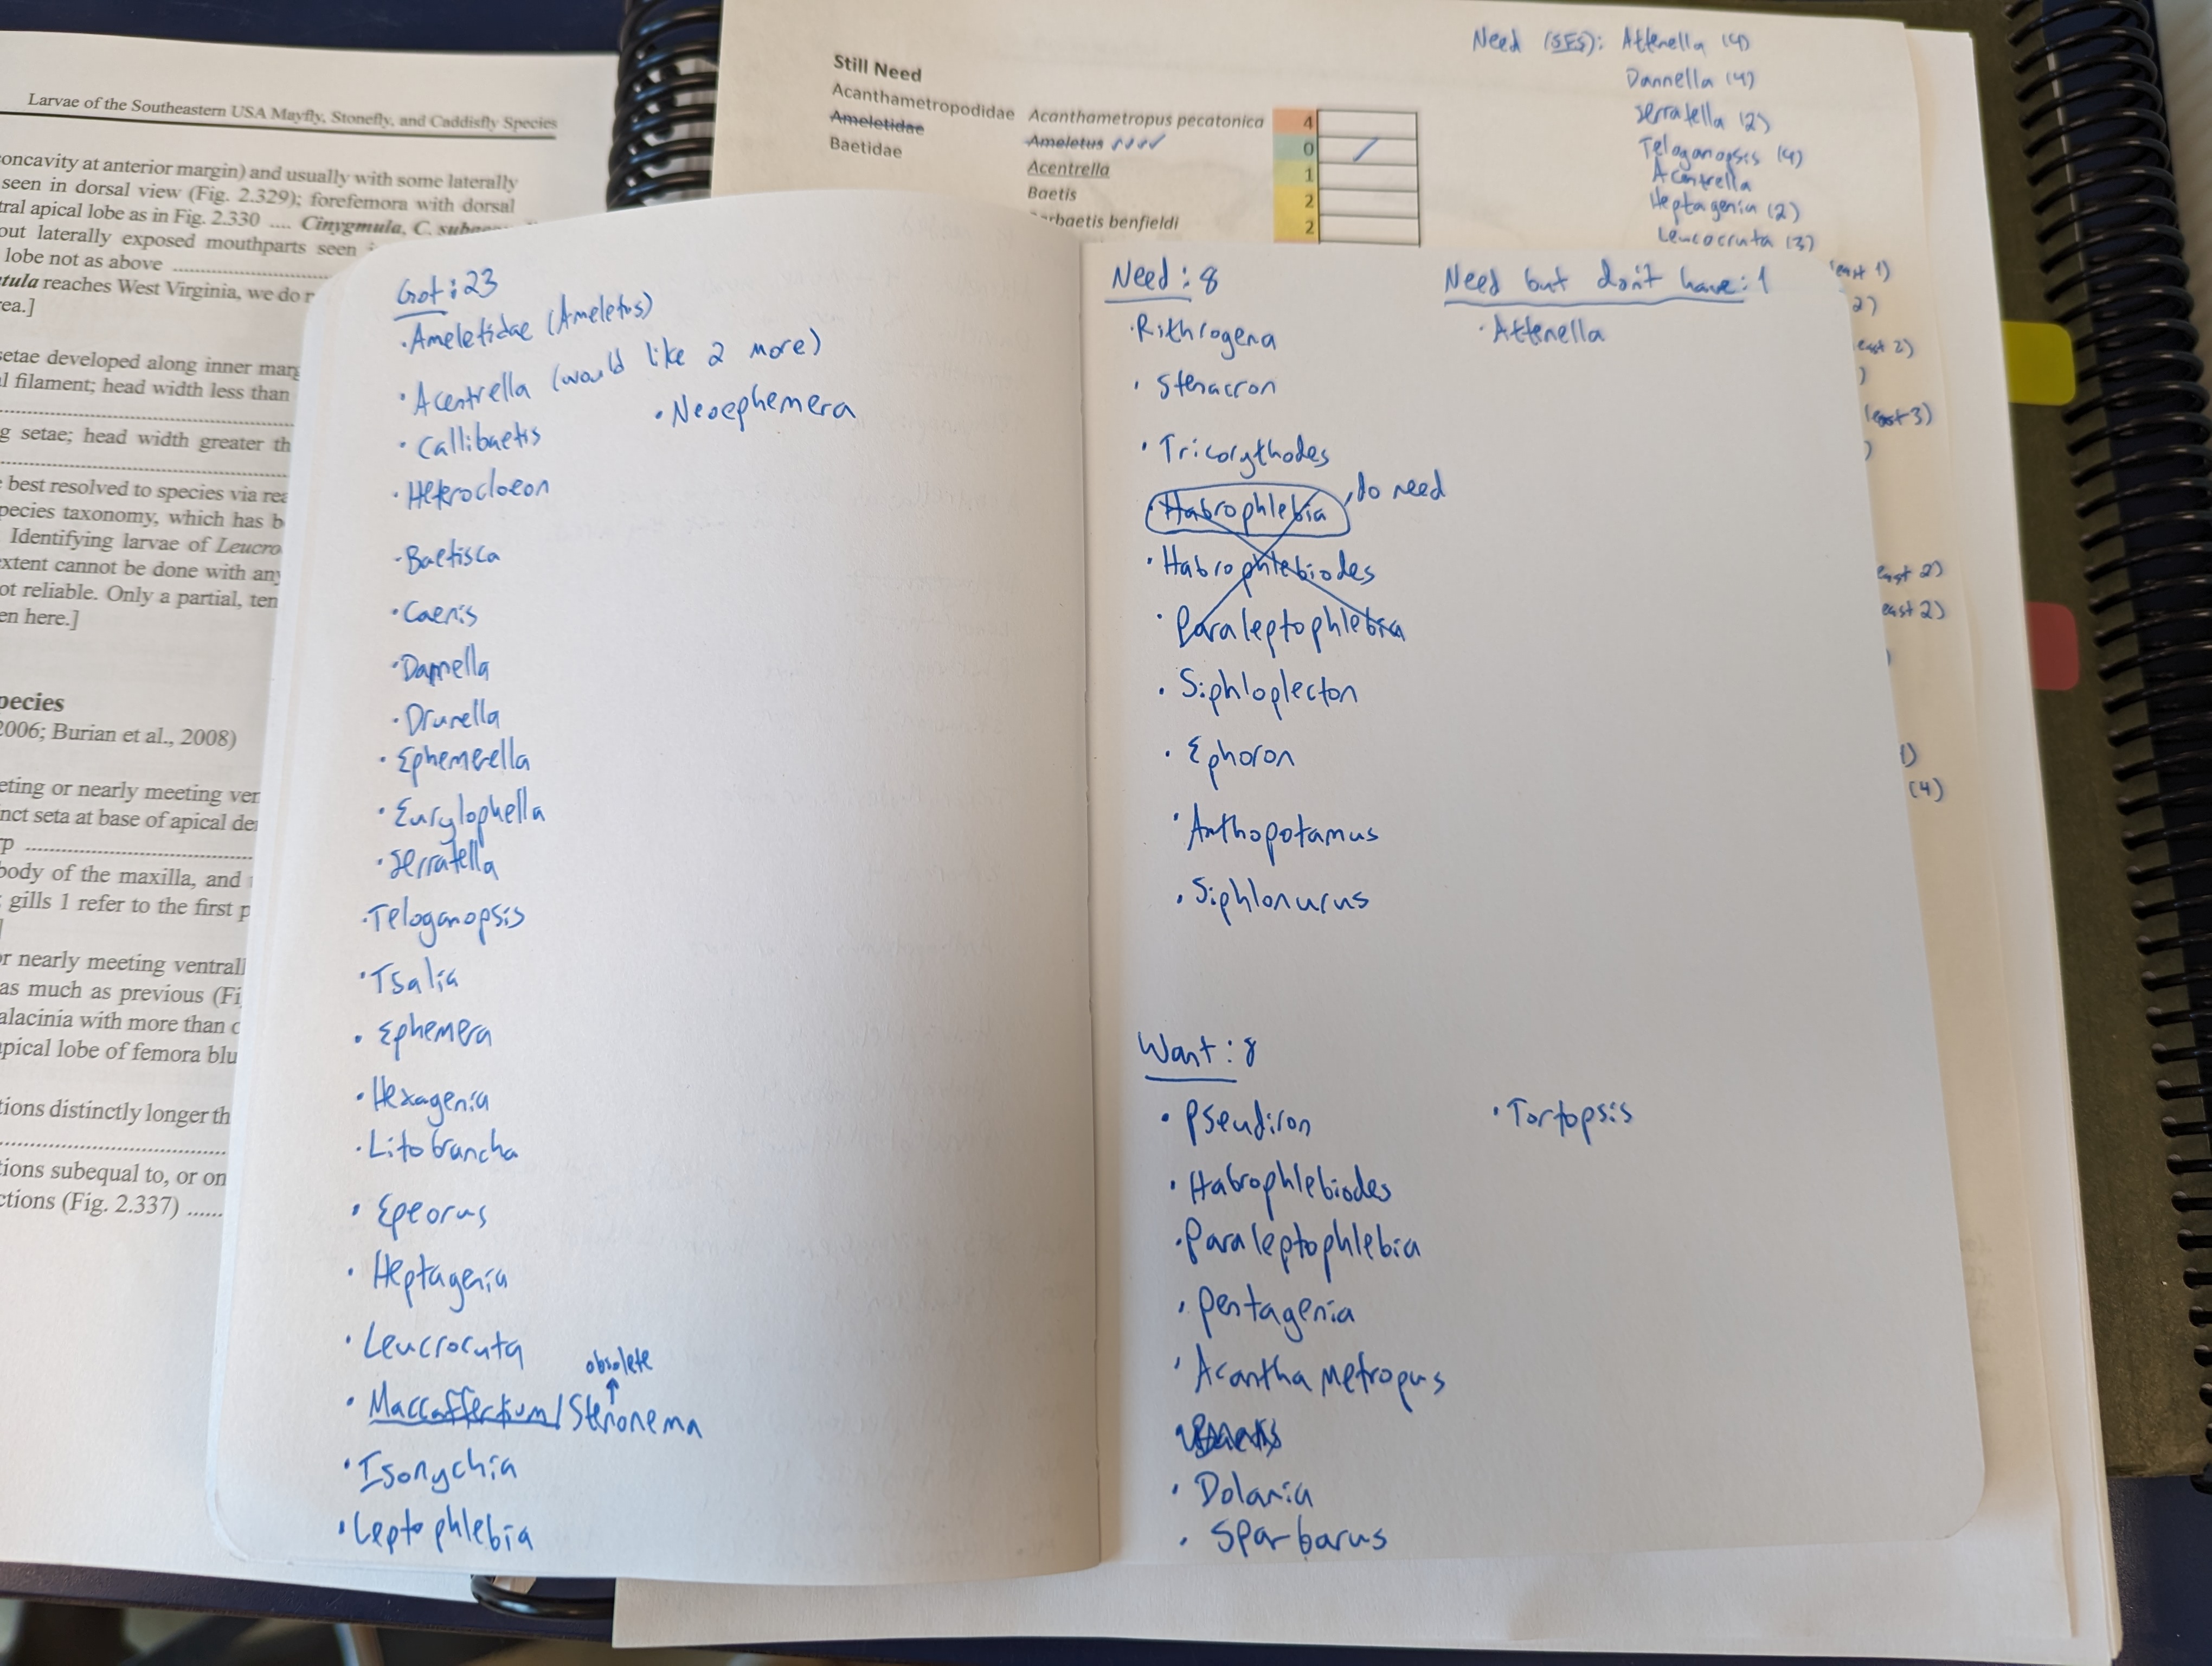 Larvae of the Southeastern USA Mayfly, Stonefly, and Caddisfly Species
oncavity at anterior margin) and usually with some laterally
seen in dorsal view (Fig. 2.329); forefemora with dorsal
tral apical lobe as in Fig. 2.330 .... Cinygmula, C.
out laterally exposed mouthparts seen
lobe not as above
tula reaches West Virginia, we do
rea.]
setae developed along inner
l filament; head width less than
g setae; head width greater
best resolved to species via
species taxonomy, which has
Identifying larvae of Leucro
extent cannot be done with any
ot reliable. Only a partial, ten
en here.]
pecies
2006; Burian et al., 2008)
eting or nearly meeting ver
nct seta at base of apical de
p
body of the maxilla, and
gills 1 refer to the first p
]
or nearly meeting ventrall
as much as previous (Fi
alacinia with more than
apical lobe of femora blu
tions distinctly longer th
tions subequal to, or on
ctions (Fig. 2.337) ......
Still Need
Acanthametropodidae Acanthametropus pecatonica 4
Ameletidae Ameletus ✓✓✓✓ 0 /
Baetidae Acentrella 1
Baetis 2
rbaetis benfieldi 2
Need (SES): Attenella (4)
Dannella (4)
Serratella (2)
Teloganopsis (4)
Acentrella
Heptagenia (2)
Leucocruta (3)
(east 1)
2)
east 2)
)
(east 3)
)
east 2)
east 2)
)
1)
(4)
Got: 23
·Ameletidae (Ameletus)
·Acentrella (would like 2 more)
·Neoephemera
·Callibaetis
·Heterocloeon
·Baetisca
·Caenis
·Dannella
·Drunella
·Ephemerella
·Eurylophella
·Serratella
·Teloganopsis
·Tsalia
·Ephemera
·Hexagenia
·Litobrancha
·Epeorus
·Heptagenia
·Leucrocuta
obsolete
↑
·Maccaffertium/Stenonema
·Isonychia
·Leptophlebia
Need: 8
·Rithrogena
·Stenacron
·Tricorythodes
·Habrophlebia , do need
·Habrophlebiodes
·Paraleptophlebia
·Siphloplecton
·Ephoron
·Anthopotamus
·Siphlonurus
Need but don't have: 1
·Attenella
Want: 8
·Pseudiron
·Tortopsis
·Habrophlebiodes
·Paraleptophlebia
·Pentagenia
·Acanthametropus
·Baetis
·Dolania
·Sparbarus